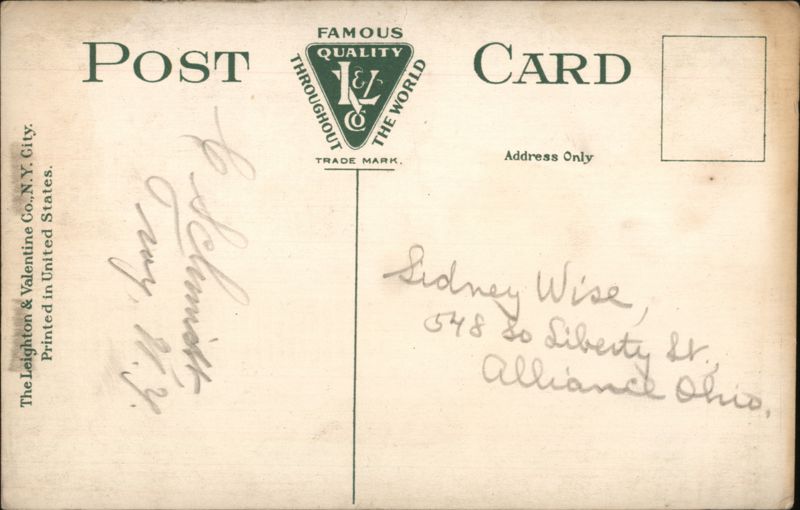 POST CARD
FAMOUS
QUALITY
THROUGHOUT
THE WORLD
L&V
Co
TRADE MARK.
Address Only
The Leighton & Valentine Co., N.Y. City.
Printed in United States.
C Schmidt
Troy, N.Y.
Sidney Wise,
548 So Liberty St.,
Alliance Ohio.